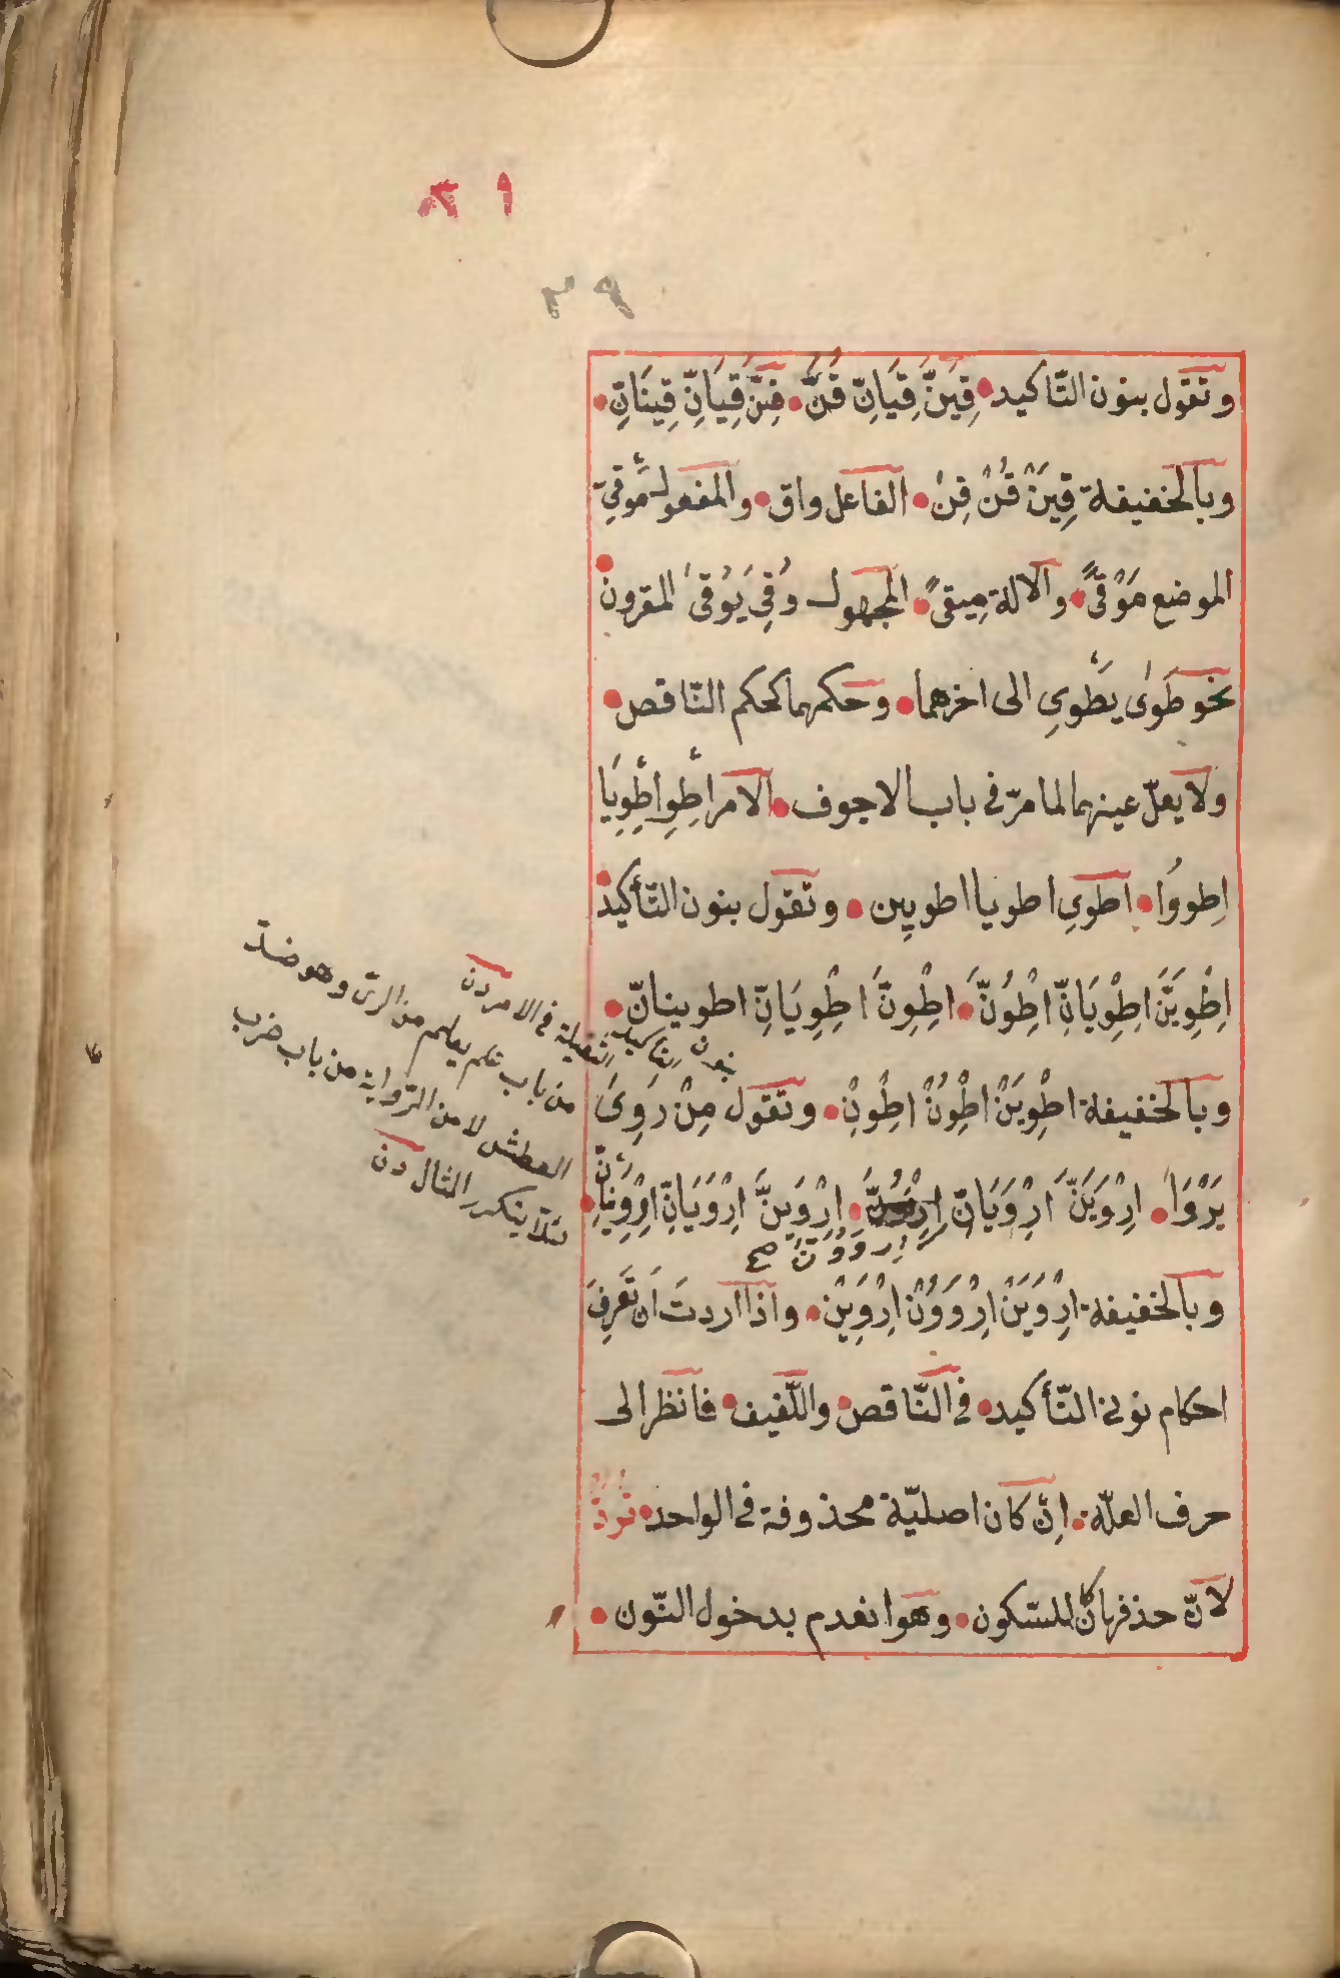 ٣٩
وتقول بنون التّاكيد قِيَنَّ قِيَانِّ قُنَّ قِنَّ قِيَانِّ قِينَانِّ
وبالخفيفة قِيَنْ قُنْ قِنْ الفاعل واق والمفعول مَوْقِيّ
الموضع مَوْقًى والآلة مِيقًى المجهول وُقِيَ يُوْقىٰ المقرون
نحو طَوىٰ يَطْوِي الى اخرهما وحكمهما كحكم النّاقص
ولا يعلّ عينهما لما مرّ في باب الاجوف الامر اِطْوِ اِطْوِيَا
اِطووُا اطوِى اطويا اطوِين وتقول بنون التّأكيد
اِطْوِيَنَّ اِطْوِيَانِّ اِطْوُنَّ اِطْوِنَّ اطْوِيَانِّ اطوينانّ
وبالخفيفة اطْوِيَنْ اطْوُنْ اطْوِنْ وتقول مِنْ رَوِىَ
يَرْوَا اِرْوَيَنَّ اِرْوَيَانِّ اِرْوَوُنَّ صح اِرْوَيِنَّ اِرْوَيَانِّ اِرْوَيْنَانِّ
وبالخفيفة اِرْوَيَنْ اِرْوَوُنْ اِرْوَيِنْ واذا اردتَ اَن تَعرِفَ
احكام نونى التّأكيد فى النّاقص واللّفيف فانظر الى
حرف العلّة اِن كان اصليّة محذوفة فى الواحد تُرَدُّ
لانّ حذفها كان للسّكون وهو انعدم بدخول النّون
بنون التاكيد الثقيلة فى الامر دن
من باب علم يعلم من الرىّ وهو ضدّ
العطش لا من الرّواية من باب ضرب
لئلا يتكرر المثال دن